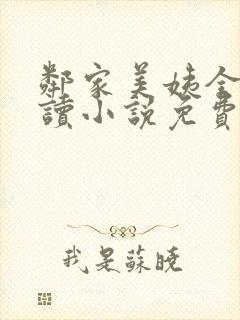 鄰家美姨全
讀小說免費
我是蘇曉